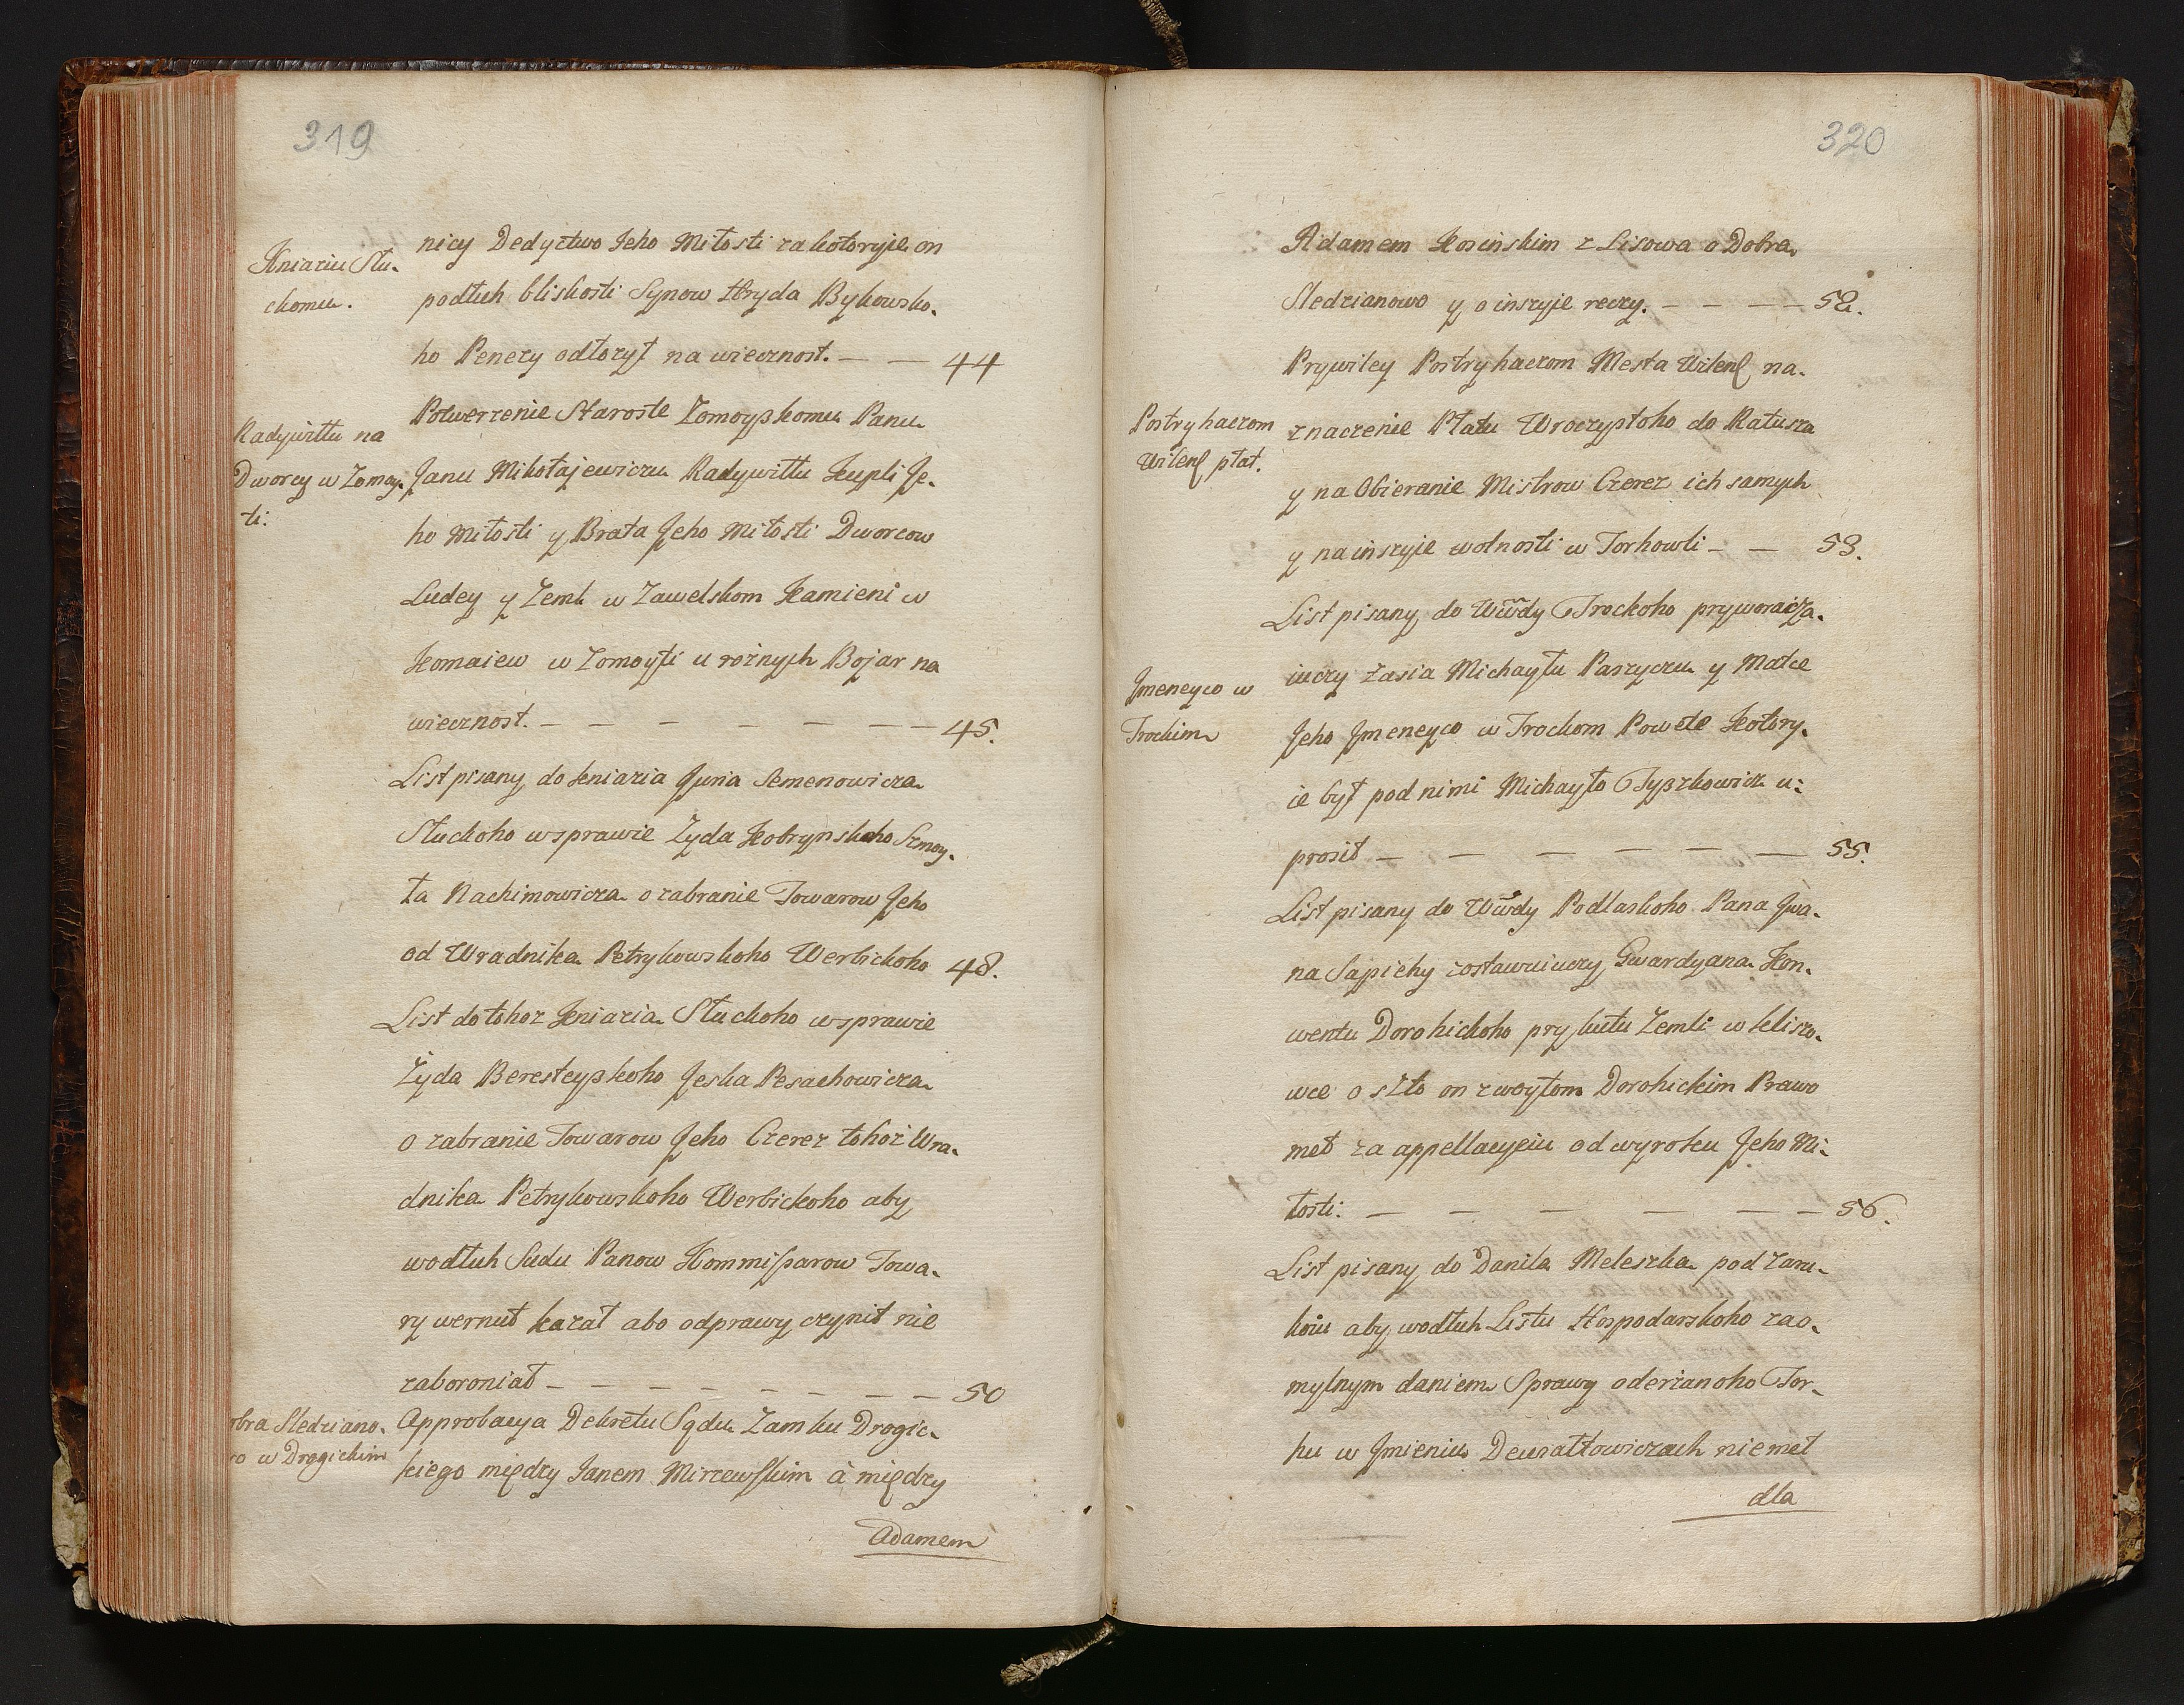 319
Kniaziu Słu-
ckomu.
nicy Dedyctwo Jeho Miłosti za kotoryje on
podłuh bliskosti Synow Hryda Bykowsko-
ho Penezy odłożył na wiecznost. — — 44
Radywiłłu na
Dworcy w Zomoy-
ti:
Potwerzenie Staroste Zomoyskomu Panu
Janu Mikołajewiczu Radywiłłu Kupli Je-
ho Miłosti y Brata Jeho Miłosti Dworcow
Ludey y Zeml w Zawelskom Kamieni w
Komaiew w Zomoyti u rożnych Bojar na
wiecznost. — — — — — — — 45.
List pisany do kniazia Juria Semenowicza
Słuckoho w sprawie Żyda Kobrynskoho Szmoy-
ła Nachimowicza o zabranie Towarow Jeho
od Wradnika Petrykowskoho Werbickoho 48.
List do tohoz Kniazia Słuckoho w sprawie
Żyda Beresteyskoho Jeska Pesachowicza
o zabranie Towarow Jeho Czerez tohoż Wra-
dnika Petrykowskoho Werbickoho aby
wodłuh Sudu Panow Kommissarow Towa-
ry wernuł kazał abo odprawy czynił nie
zaboroniał — — — — — — — — 50
obra Sledziano-
wo w Drogickim
Approbacya Dekretu Sądu Zamku Drogic-
kiego między Janem Mirzewskim à między
Adamem
320
Adamem Kosinskim z Lisowa o Dobra
Sledzianowo y o inszyje reczy. — — — — 52.
Postryhaczom
Wilen[s] płat.
Prywiley Postryhaczom Mesta Wilen[s] na-
znaczenie Płatu Uroczystoho do Ratusza
y na Obieranie Mistrow Czerez ich samych
y na inszyje wolnosti w Torhowli — — 53.
Jmeneyco w
Trockim
List pisany do Wwdy Trockoho pryworacza-
iuczy zasia Michayłu Paszyczu y Matce
Jeho Jmeneyco w Trockom Powete Kotory-
ie był pod nimi Michayło Tyszkowicz u-
prosił — — — — — — 55.
List pisany do Wwdy Podlaskoho Pana Jwa-
na Sapichy zostawuiuczy Gwardyana Kon-
wentu Dorohickoho pry kutu Zemli w kliszo-
wce o szto on z woytom Dorohickim Prawo
meł za appellacyeiu od wyroku Jeho Mi-
łosti: — — — — — — 56.
List pisany do Danila Meleszka pod zaru-
koiu aby wodłuh Listu Hospodarskoho zao-
mylnym daniem Sprawy oderżanoho Tor-
hu w Jmieniu Dewiałtowiczach niemeł
dla